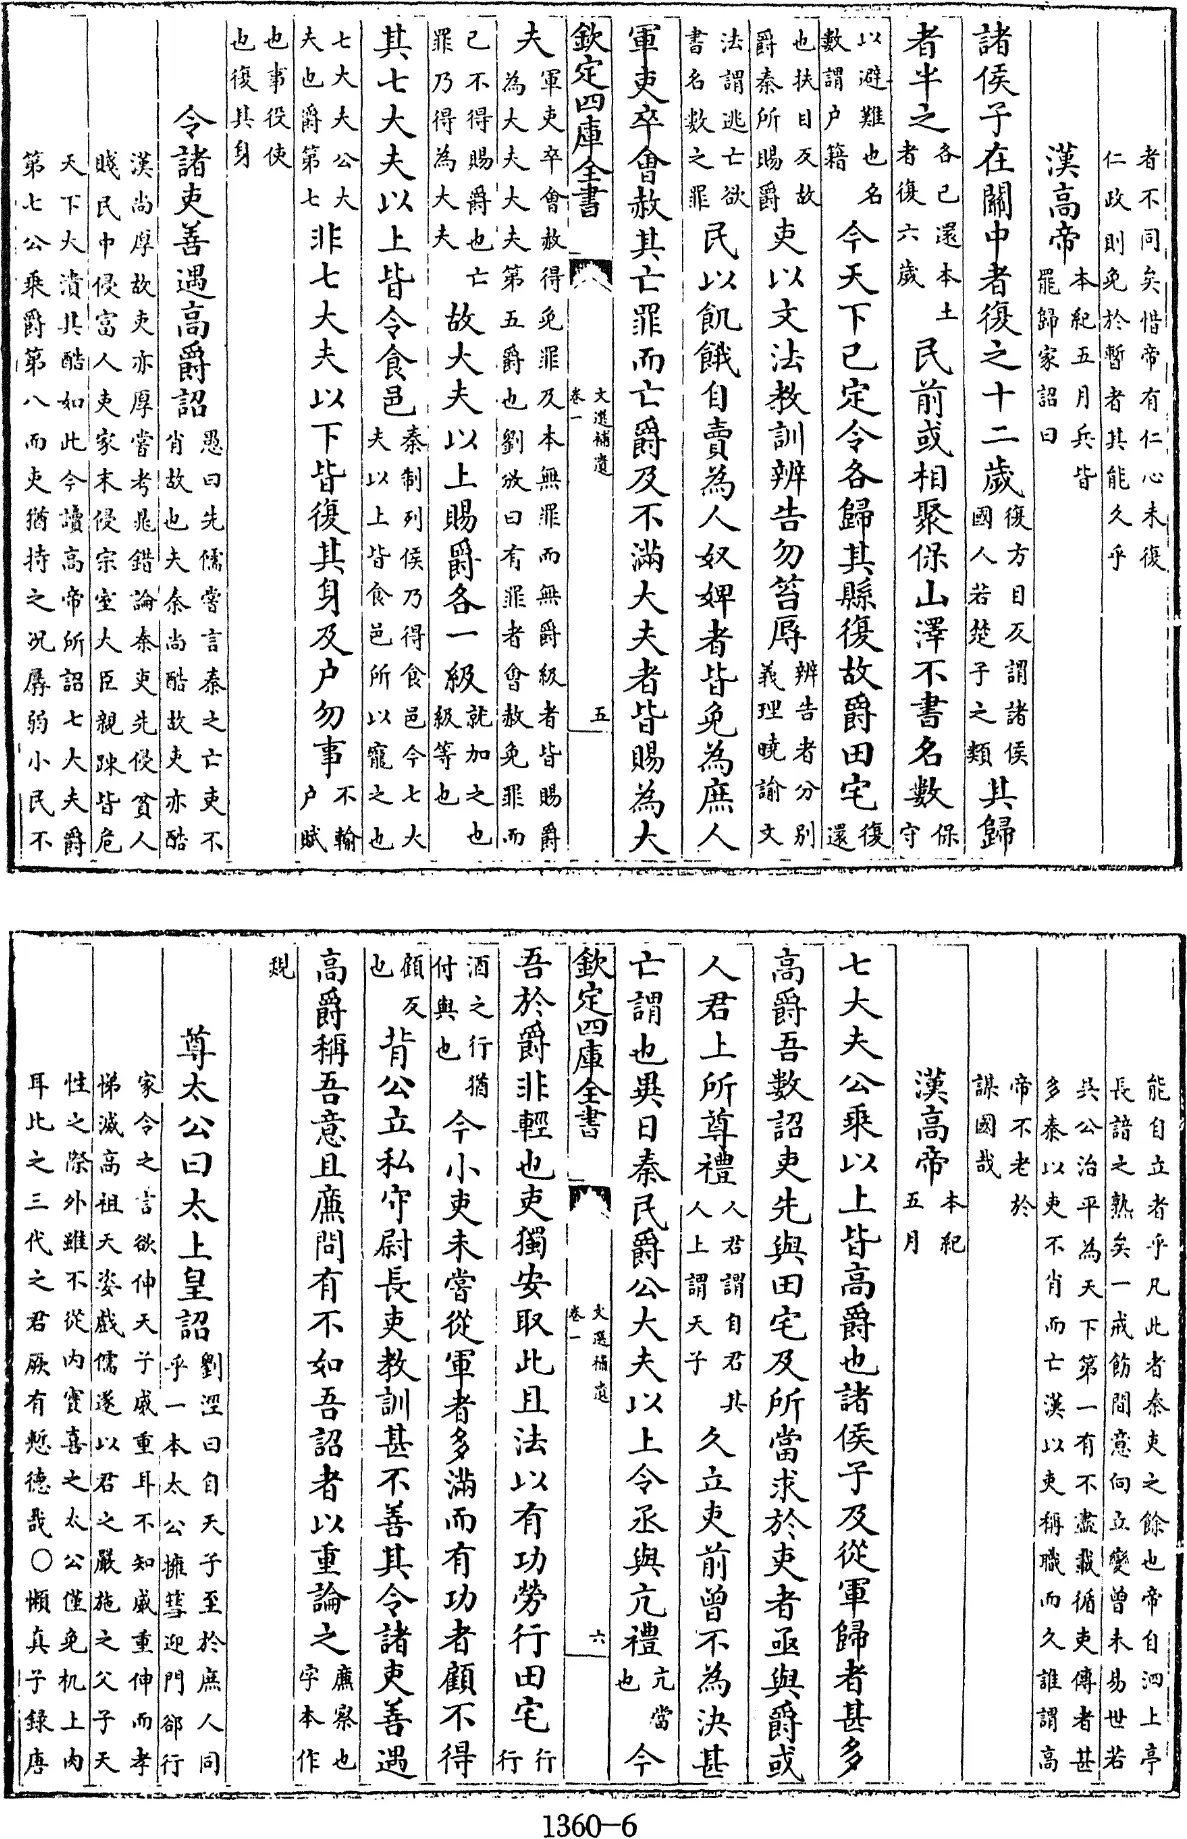 者不同矣惜帝有仁心未復
仁政則免於暫者其能久乎
漢高帝本紀五月兵皆罷歸家詔曰
諸侯子在關中者復之十二歲復方目反謂諸侯國人若楚子之類其歸
者半之各已還本土者復六歲民前或相聚保山澤不書名數保守
以避難也名數謂户籍今天下已定令各歸其縣復故爵田宅復還
也扶目反故爵秦所賜爵吏以文法教訓辨告勿笞辱辨告者分別義理曉諭文
法謂逃亡欲書名數之罪民以飢餓自賣為人奴婢者皆免為庶人
軍吏卒會赦其亡罪而亡爵及不滿大夫者皆賜為大
欽定四庫全書 文選補遺卷一 五
夫軍吏卒會赦得免罪及本無罪而無爵級者皆賜爵為大夫大夫第五爵也劉攽曰有罪者會赦免罪而
己不得賜爵也亡罪乃得為大夫故大夫以上賜爵各一級就加之也級等也
其七大夫以上皆令食邑秦制列侯乃得食邑今七大夫以上皆食邑所以寵之也
七大夫公大夫也爵第七非七大夫以下皆復其身及户勿事不輸户賦
也事役使也復其身
令諸吏善遇高爵詔愚曰先儒嘗言秦之亡吏不肖故也夫秦尚酷故吏亦酷
漢尚厚故吏亦厚嘗考晁錯論秦吏先侵貧人
賤民中侵富人吏家末侵宗室大臣親踈皆危
天下大潰其酷如此今讀高帝所詔七大夫爵
第七公乘爵第八而吏猶持之况孱弱小民不
能自立者乎凡此者秦吏之餘也帝自泗上亭
長諳之熟矣一戒飭間意向立變曾未易世若
吳公治平為天下第一有不盡載循吏傳者甚
多秦以吏不肖而亡漢以吏稱職而久誰謂高
帝不老於
謀國哉
漢高帝本紀五月
七大夫公乘以上皆高爵也諸侯子及從軍歸者甚多
高爵吾數詔吏先與田宅及所當求於吏者亟與爵或
人君上所尊禮人君謂自君其人上謂天子久立吏前曾不為決甚
亡謂也異日秦民爵公大夫以上令丞與亢禮亢當也今
欽定四庫全書 文選補遺卷一 六
吾於爵非輕也吏獨安取此且法以有功勞行田宅行
酒之行猶付與也今小吏未嘗從軍者多滿而有功者顧不得
顧反也背公立私守尉長吏教訓甚不善其令諸吏善遇
高爵稱吾意且廉問有不如吾詔者以重論之廉察也字本作
覝
尊太公曰太上皇詔劉淫曰自天子至於庶人同乎一本太公擁彗迎門郤行
家令之言欲伸天子威重耳不知威重伸而孝
悌滅高祖天姿戲儒遂以君之嚴施之父子天
性之際外雖不從内實喜之太公僅免机上肉
耳比之三代之君厥有慙德哉〇懶真子錄唐
1360-6